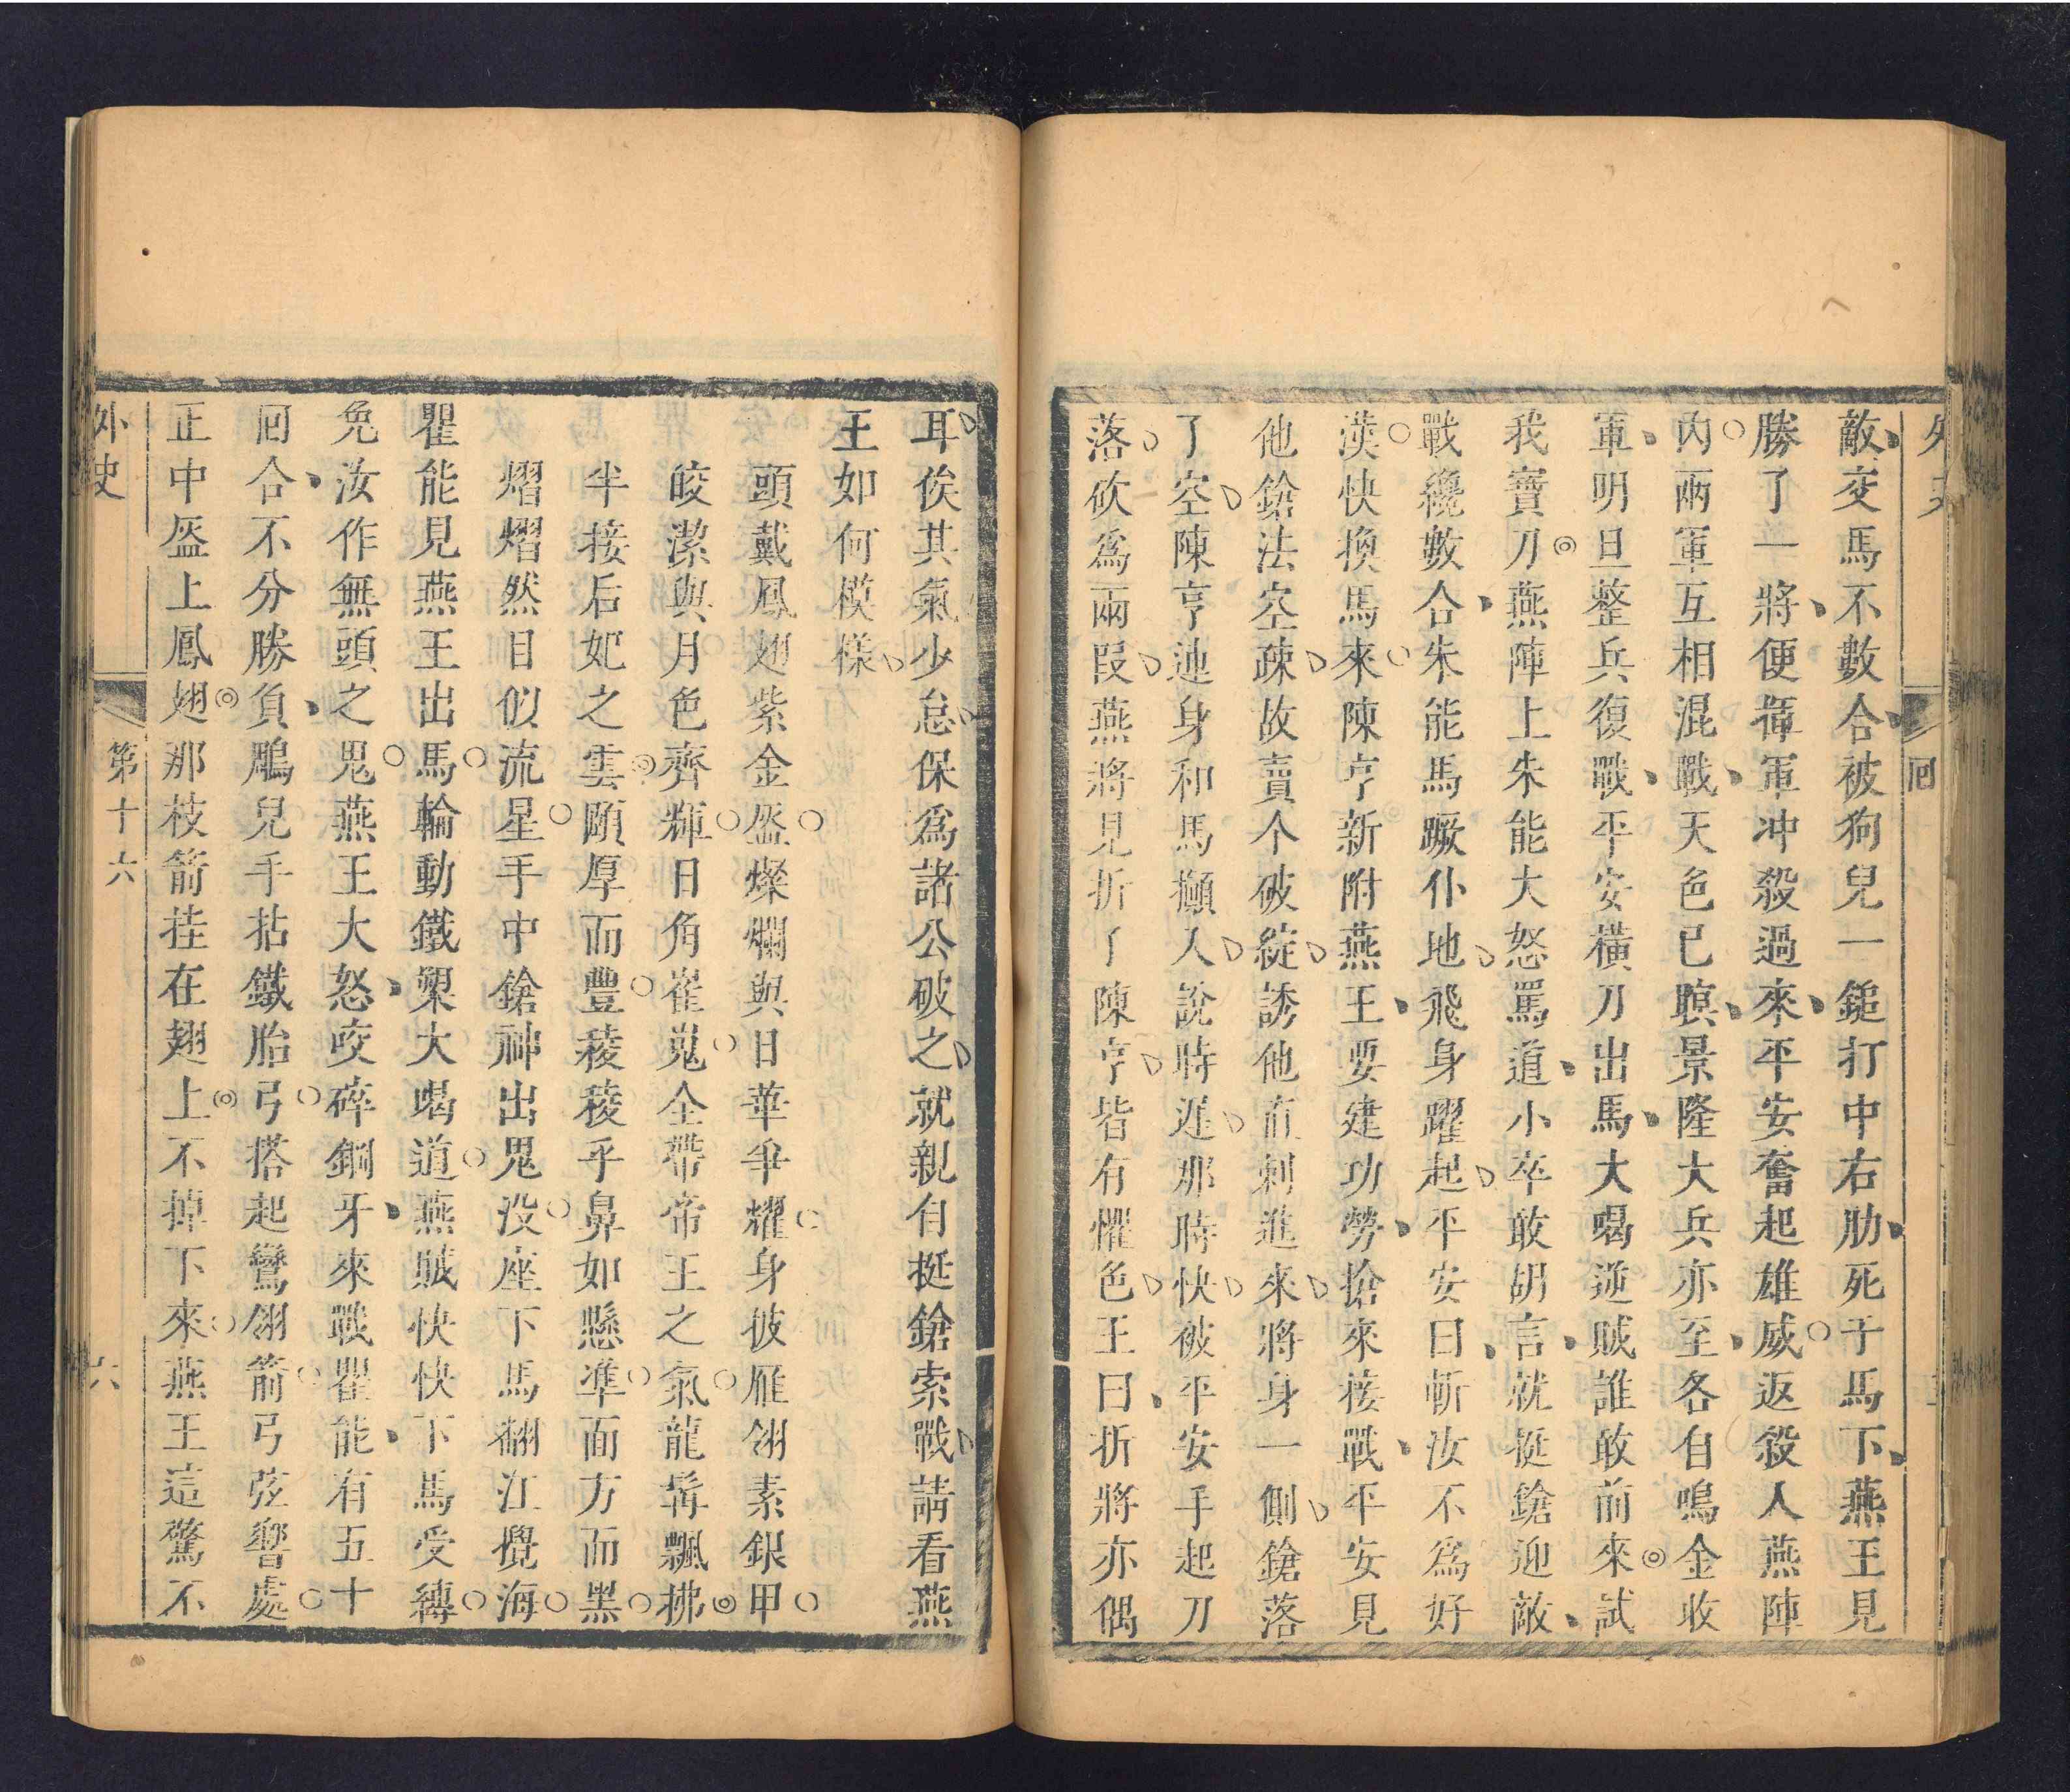 外史
囘
敵交馬不數合被狗兒一鎚打中右肋死于馬下燕王見
勝了一將便揮軍冲殺過來平安奮起雄威返殺人燕陣
內兩軍互相混戰天色已暝景隆大兵亦至各自鳴金收
軍明旦整兵復戰平安橫刀出馬大喝逆賊誰敢前來試
我寶刀燕陣上朱能大怒罵道小卒敢胡言就挺鎗迎敵
戰纔數合朱能馬蹶仆地飛身躍起平安曰斬汝不爲好
漢快換馬來陳亨新附燕王要建功勞搶來接戰平安見
他鎗法空疎故賣个破綻誘他直刺進來將身一側鎗落
了空陳亨連身和馬攧人說時遲那時快被平安手起刀
落砍爲兩叚燕將見折了陳亨皆有懼色王曰折將亦偶
耳俟其氣少怠保爲諸公破之就親自挺鎗索戰請看燕
王如何模樣
頭戴鳳翅紫金盔燦爛與日華爭耀身披雁翎素銀甲
皎潔與月色齊輝日角崔嵬全帶帝王之氣龍髯飄拂
半接后妃之雲頤厚而豐稜稜乎鼻如懸準面方而黑
熠熠然目似流星手中鎗神出鬼没座下馬翻江攪海
瞿能見燕王出馬輪動鐵槊大喝道燕賊快快下馬受縛
免汝作無頭之鬼燕王大怒咬碎鋼牙來戰瞿能有五十
囘合不分勝負鵰兒手拈鐵胎弓搭起鸞翎箭弓弦響處
正中盔上鳳翅那枝箭挂在翅上不掉下來燕王這驚不
外史
第十六
六